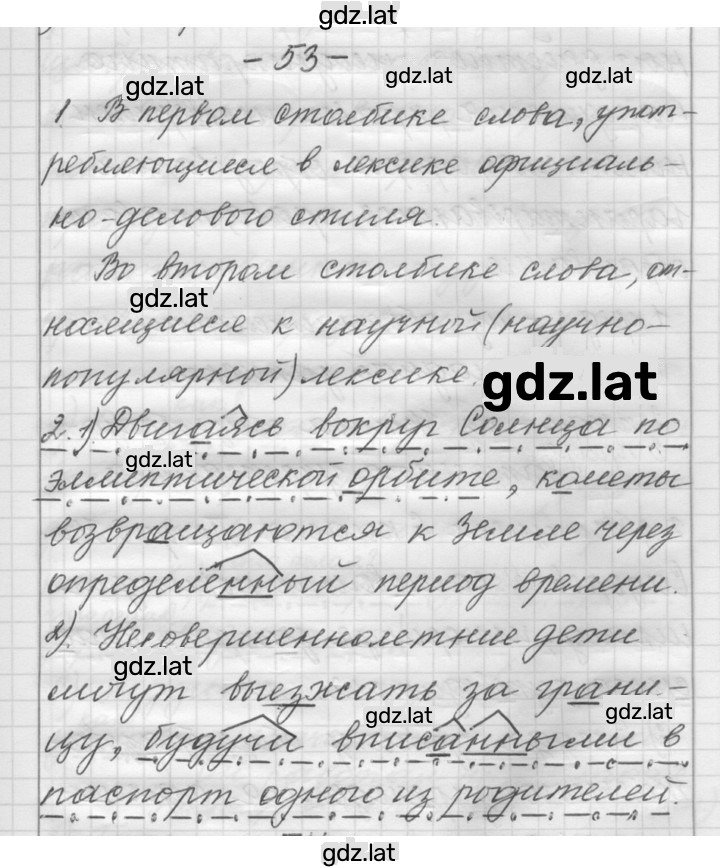 gdz.lat
- 53 -
gdz.lat gdz.lat gdz.lat
1 В первом столбике слова, упот-
ребляющиеся в лексике официаль-
но-делового стиля.
Во втором столбике слова, от-
gdz.lat
носящиеся к научной (научно-
популярной) лексике.
gdz.lat
2. 1) Двигаясь вокруг Солнца по
gdz.lat
эллиптической орбите, кометы
возвращаются к Земле через
определённый период времени.
2). Несовершеннолетние дети
gdz.lat
могут выезжать за грани-
gdz.lat gdz.lat
цу, будучи вписанными в
паспорт одного из родителей.
gdz.lat